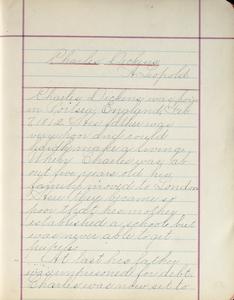 Charles Dickens
A. Leopold
Charles Dickens was born
in Portsea, England, Feb
7, 1812. His father was
very poor and could
hardly make a living.
When Charles was ab
out five years old his
family moved to London
Here they became so
poor that his mother
established a school but
was never able to get
pupils.
At last his father
was imprisoned for debt.
Charles was now set to